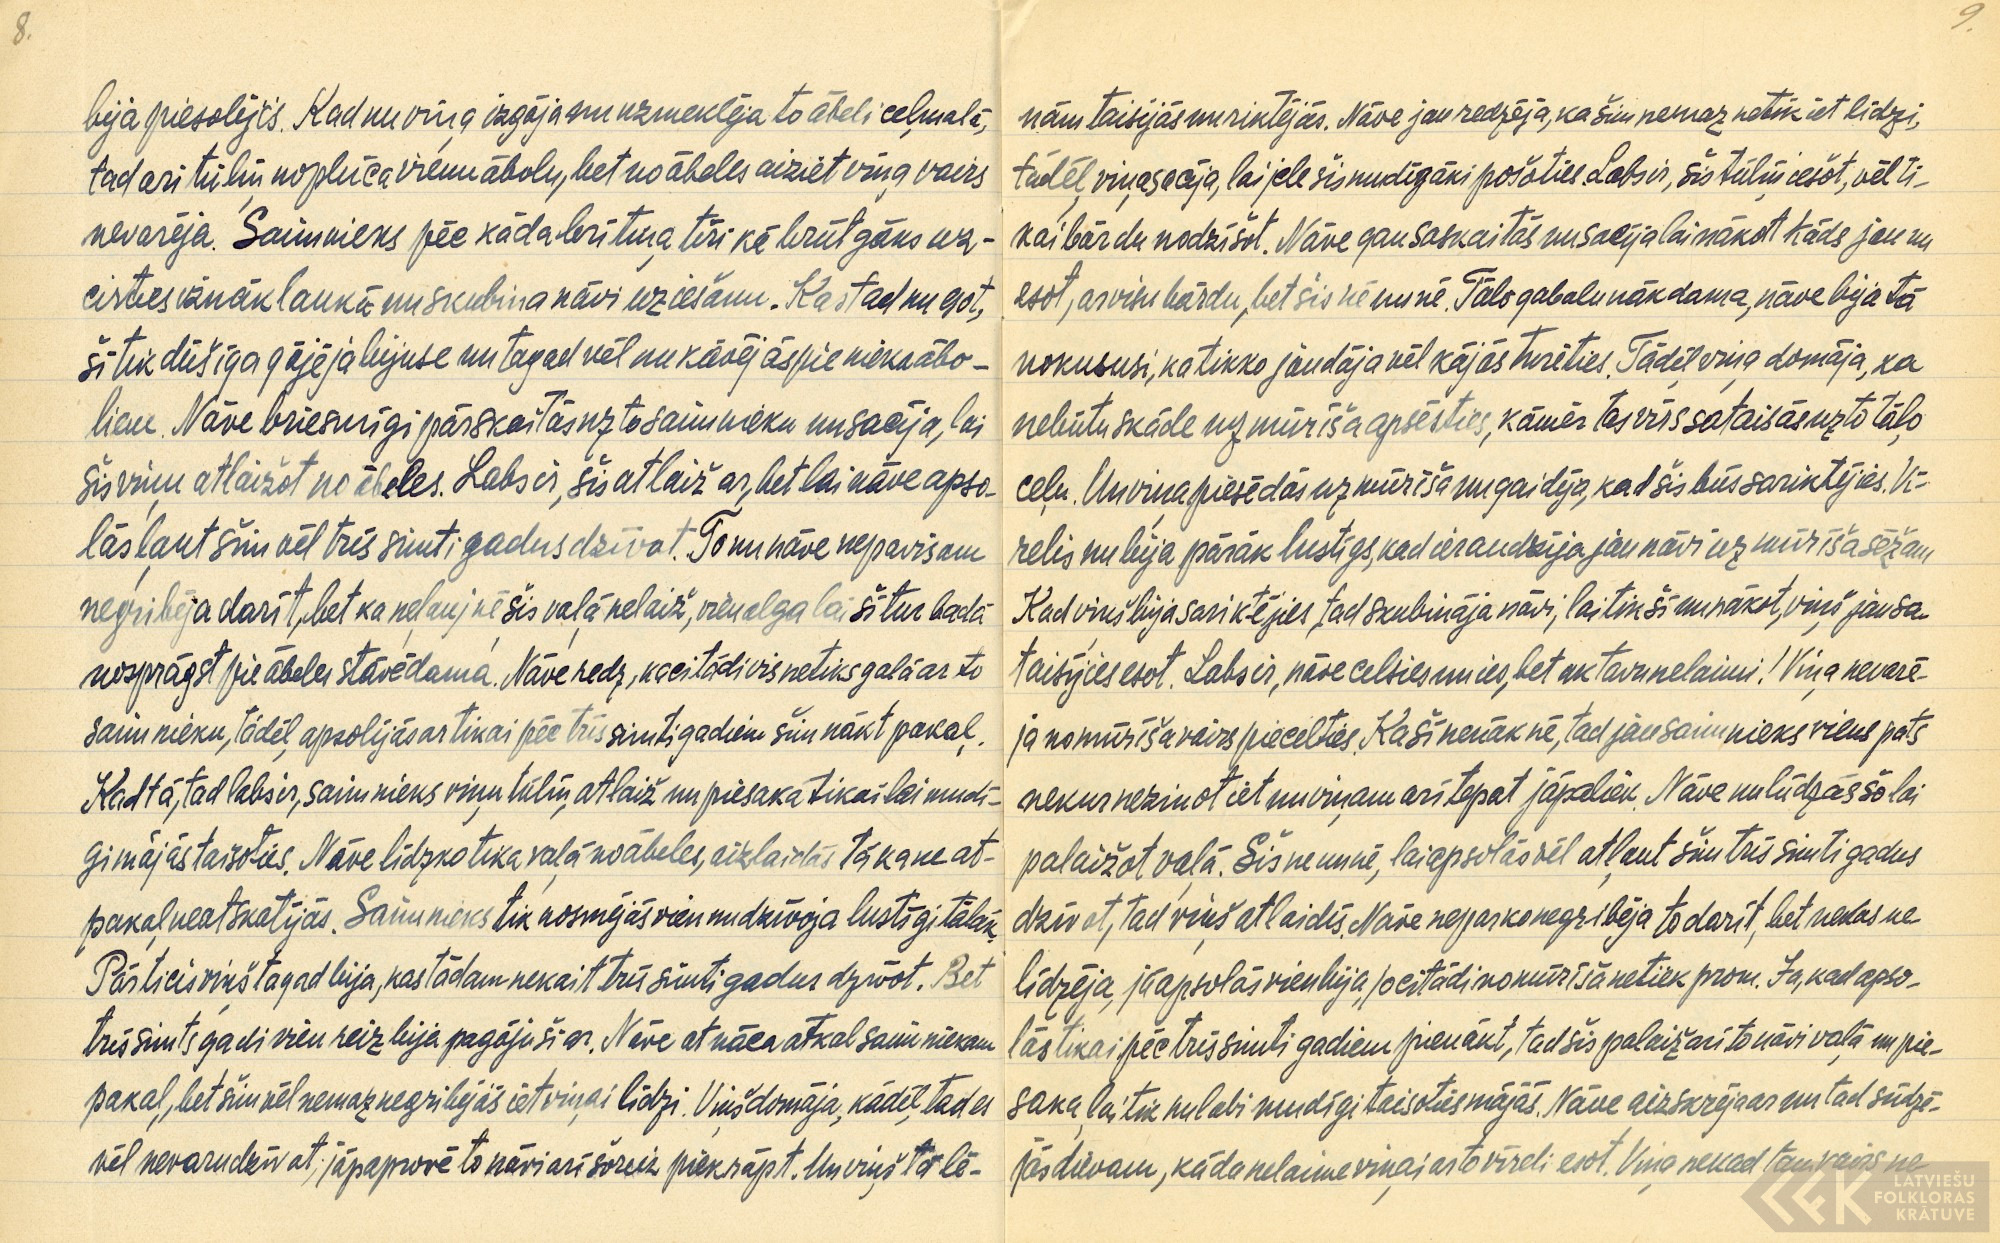 8.
bija piesolījis. Kad nu viņa izgāja un uzmeklēja to ābeli ceļmalā,
tad arī tūliņ noplūca vienu ābolu, bet no ābeles aiziet viņa vairs
nevarēja. Saimnieks pēc kāda brītiņa tīri kā brūtgāns uz-
cirties iznāk laukā un skubina nāvi uz iešanu. Kas tad nu got,
šī tik dūšīga gājēja bijuse un tagad vēl nu kavējās pie nieka ābo-
liem. Nāve briesmīgi pārskaitās uz to saimnieku un sacīja, lai
šis viņu atlaižot no ābeles. Labs ir, šis atlaiž ar, bet lai nāve apso-
lās ļaut šim vēl trīs simti gadus dzīvot. To nu nāve nepavisam
negribēja darīt, bet ka neļauj nē šis vaļā nelaiž, vienalga lai šī tur badā
nosprāgst pie ābeles stāvēdama. Nāve redz, ka citādi vis netiks galā ar to
saimnieku, tādēļ apsolījās ar tikai pēc trīs simti gadiem šim nākt pakaļ.
Kad tā, tad labs ir, saimnieks viņu tūliņ atlaiž un piesaka tikai lai mudī-
gi mājās taisoties. Nāve līdzko tika vaļā no ābeles, aizlaidās tā ka ne at-
pakaļ neatskatījās. Saimnieks tik nosmējās vien un dzīvoja lustīgi tālāk.
Pārticis viņš tagad bija, kas tādam nekait trīs simti gadus dzīvot. Bet
trīs simts gadi vien reiz bija pagājuši ar. Nāve atnāca atkal saimniekam
pakaļ, bet šim vēl nemaz negribējās iet viņai līdzi. Viņš domāja, kādēļ tad es
vēl nevaru dzīvot, jāpaprovē to nāvi arī šoreiz piekrāpt. Un viņš tā lē-
9.
nām taisījās un riktējās. Nāve jau redzēja, ka šim nemaz netīk iet līdzi,
tādēļ viņa sacīja, lai jele šis mudīgāki pošoties. Labs ir, šis tūliņ iešot, vēl ti-
kai bārdu nodzīšot. Nāve gan saskaitās un sacīja lai nākot kāds jau nu
esot, ar visu bārdu, bet šis nē un nē. Tālo gabalu nākdama, nāve bija tā
nokususi, ka tikko jaudāja vēl kājās turēties. Tādēļ viņa domāja, ka
nebūtu skāde uz mūrīša apsēsties, kamēr tas vīrs sataisās uz to tāļo
ceļu. Un viņa piesēdās uz mūrīša un gaidīja, kad šis būs sariktējies. Vī-
relis nu bija pārāk lustīgs, kad ieraudzīja jau nāvi uz mūrīša sēžam
Kad viņš bija sariktējies, tad skubināja nāvi, lai tik šī nu nākot, viņš jau sa-
taisījies esot. Labs ir, nāve celsies un ies, bet ak tavu nelaimi! Viņa nevarē-
ja no mūrīša vairs piecelties. Ka šī nenāk nē, tad jau saimnieks viens pats
nekur nezinot iet un viņam arī tepat jāpaliek. Nāve nu lūdzās šo lai
palaižot vaļā. Šis ne un nē, lai apsolās vēl atļaut šim trīs simti gadus
dzīvot, tad viņš atlaidīs. Nāve ne par ko negribēja to darīt, bet nekas ne
līdzēja, jāapsolās vien bija, jo citādi no mūrīša netiek prom. Ja, kad apso-
lās tikai pēc trīs simti gadiem pienākt, tad šis palaiž arī to nāvi vaļā un pie-
saka, lai tik nu labi mudīgi taisoties mājās. Nāve aizskrēja ar un tad sūdzē-
jās dievam, kāda nelaime viņai ar to vīreli esot. Viņa nekad tam vairs ne
LATVIEŠU
FOLKLORAS
KRĀTUVE